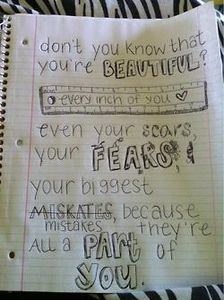 don't you know that
you're BEAUTIFUL?
every inch of you
even your scars,
your FEARS, &
your biggest
MISKATES, because
mistakes they're
ALL A PART OF
YOU.